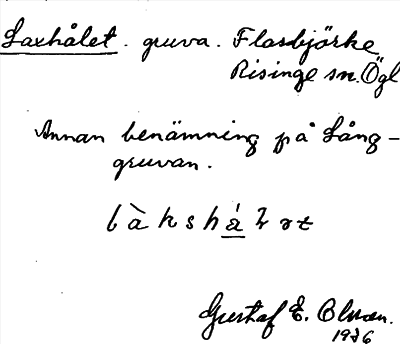 Laxhålet. gruva. Flasbjörke
Risinge sn. Ögl
Annan benämning på Lång-
gruvan.
làkshá̲lət
Gustaf E. Olsson.
1936